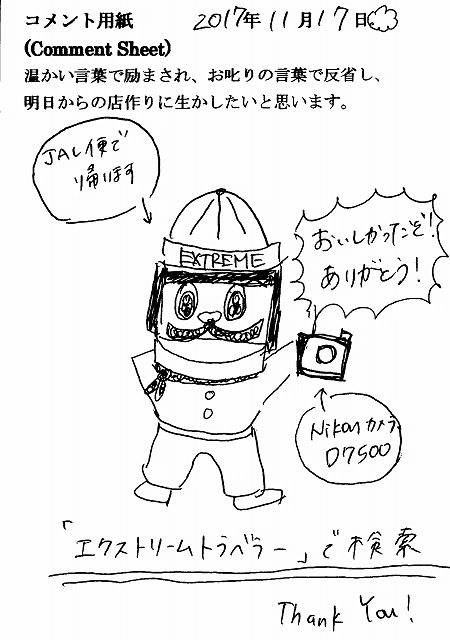 コメント用紙 2017年11月17日
(Comment Sheet)
温かい言葉で励まされ、お叱りの言葉で反省し、
明日からの店作りに生かしたいと思います。
JAL便で
帰ります
EXTREME
おいしかったぞ!
ありがとう!
Nikonカメラ
D7500
「エクストリームトラベラー」で検索
Thank You!